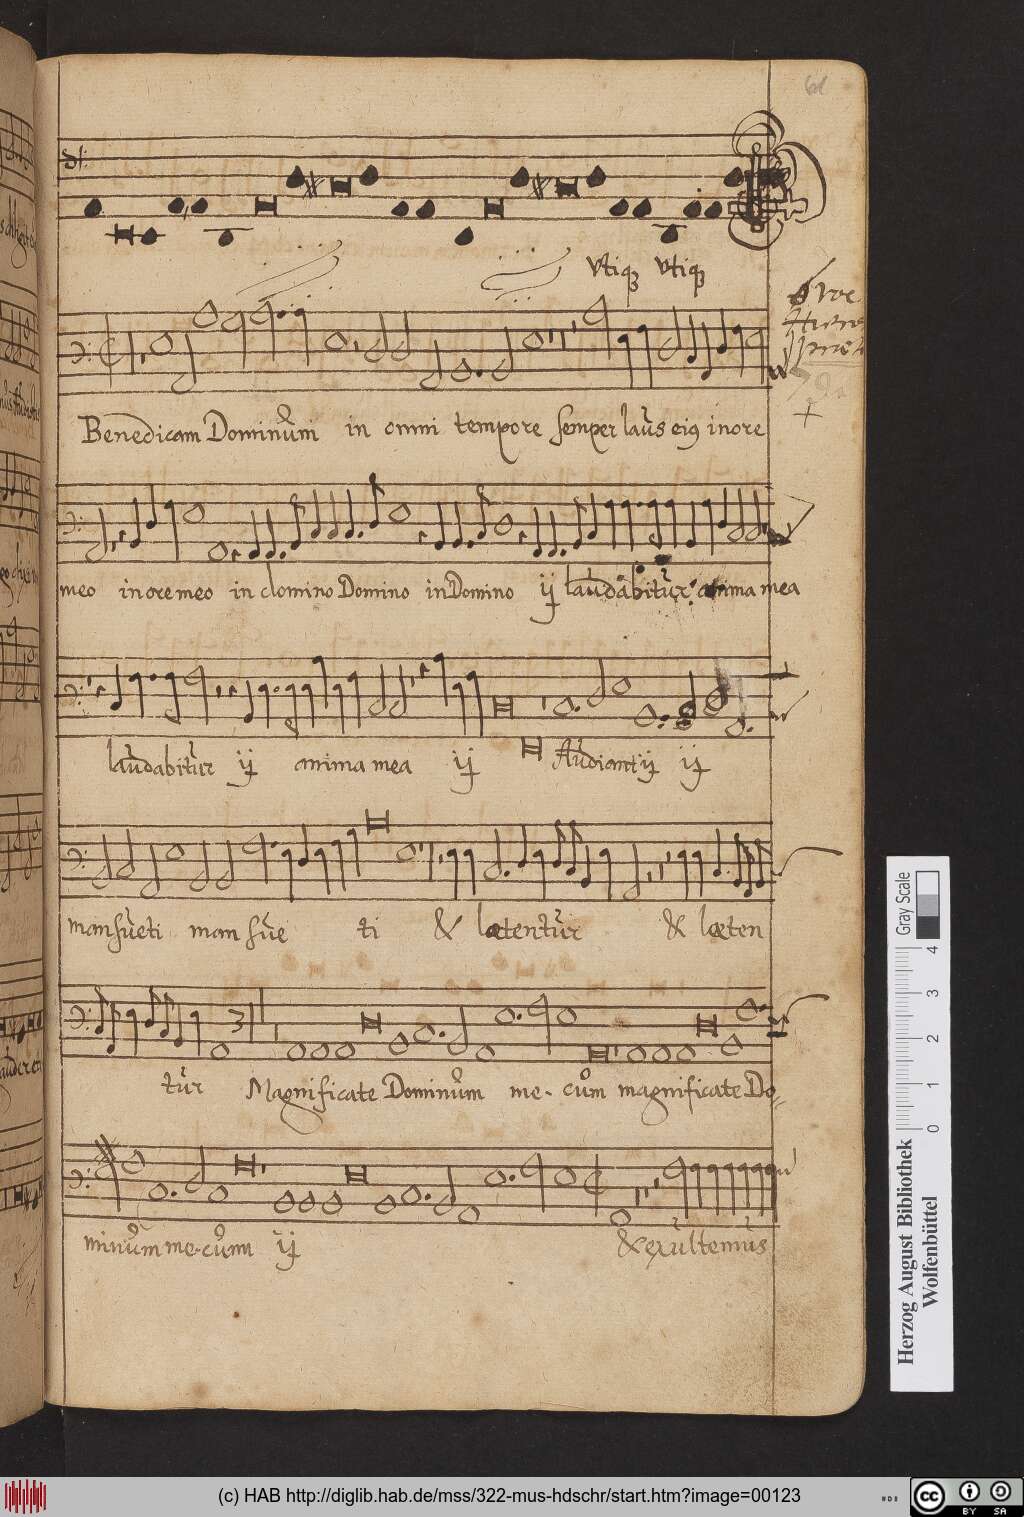 Vtiqꝫ Vtiqꝫ
Benedicam Dominum in omni tempore semper laus eiꝰ in ore
meo in ore meo in domino Domino in Domino ij laudabitur anima mea
laudabitur ij anima mea ij Audiant ij ij
mansueti man sue ti & lætentur & læten
tur Magnificate Dominum me-cum magnificate Do-
minum me-cum ij & exultemus
Gray Scale
0 1 2 3 4
Herzog August Bibliothek
Wolfenbüttel
(c) HAB http://diglib.hab.de/mss/322-mus-hdschr/start.htm?image=00123
cc BY SA